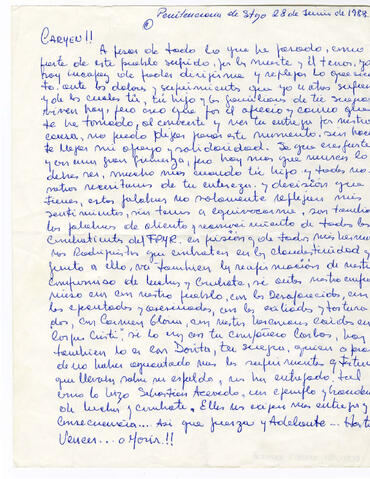 Penitenciaria de Stgo 28 de Junio de 1988.
①
CARMEN!!
A pesar de todo lo que he pasado, como
parte de este pueblo sufrido, por la muerte y el terror, soy
muy incapaz de poder decirme y reflejar lo que sien
to, ante los dolores y sufrimientos que yo u otros sufren
y de los cuales tú, tu hijo y los familiares de tu suegra
viven hoy, pero creo que por el aprecio y cariño que
te he tomado, al conocerte y ver tu entrega por nuestra
causa, no puedo dejar pasar este momento sin hacer
te llegar mi apoyo y solidaridad. Se que eres fuerte
y con una gran firmeza, pero hoy más que nunca lo
debes ser, mucho más cuando tu hijo y todos no
sotros necesitamos de tu entereza y decisión que
tienes, estas palabras no solamente reflejan mis
sentimientos, sin temor a equivocarme, son también
las palabras de aliento y reconocimiento de todos los
Combatientes del FPMR, en prisión y de todos mis herma
nos Rodriguistas que combaten en la clandestinidad y
junto a ello, va también la reafirmación de nuestro
compromiso de lucha y combate, se autos nuestro compro
miso con nuestro pueblo, con los Desaparecidos, con
los ejecutados y asesinados, con los exiliados y tortura
dos, con Carmen Gloria, con nuestros hermanos caídos en
Corpus Cristi: si lo un con tu compañero Carlos, hoy
también lo es con Dorita, tu suegra, quien a pesar
de no haber aguantado más los sufrimientos y
que llevaba sobre su espalda, nos ha entregado tal
como lo hizo Sebastián Acevedo, un ejemplo y bandera
de lucha y combate. Ellos nos exigen más entrega y
Consecuencia.... Así que fuerza y Adelante... Hasta
Vencer... o Morir!!